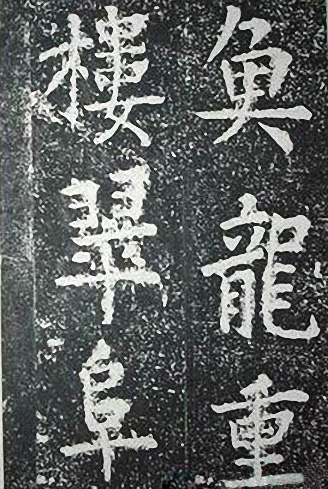 魚龍重
樓翠阜